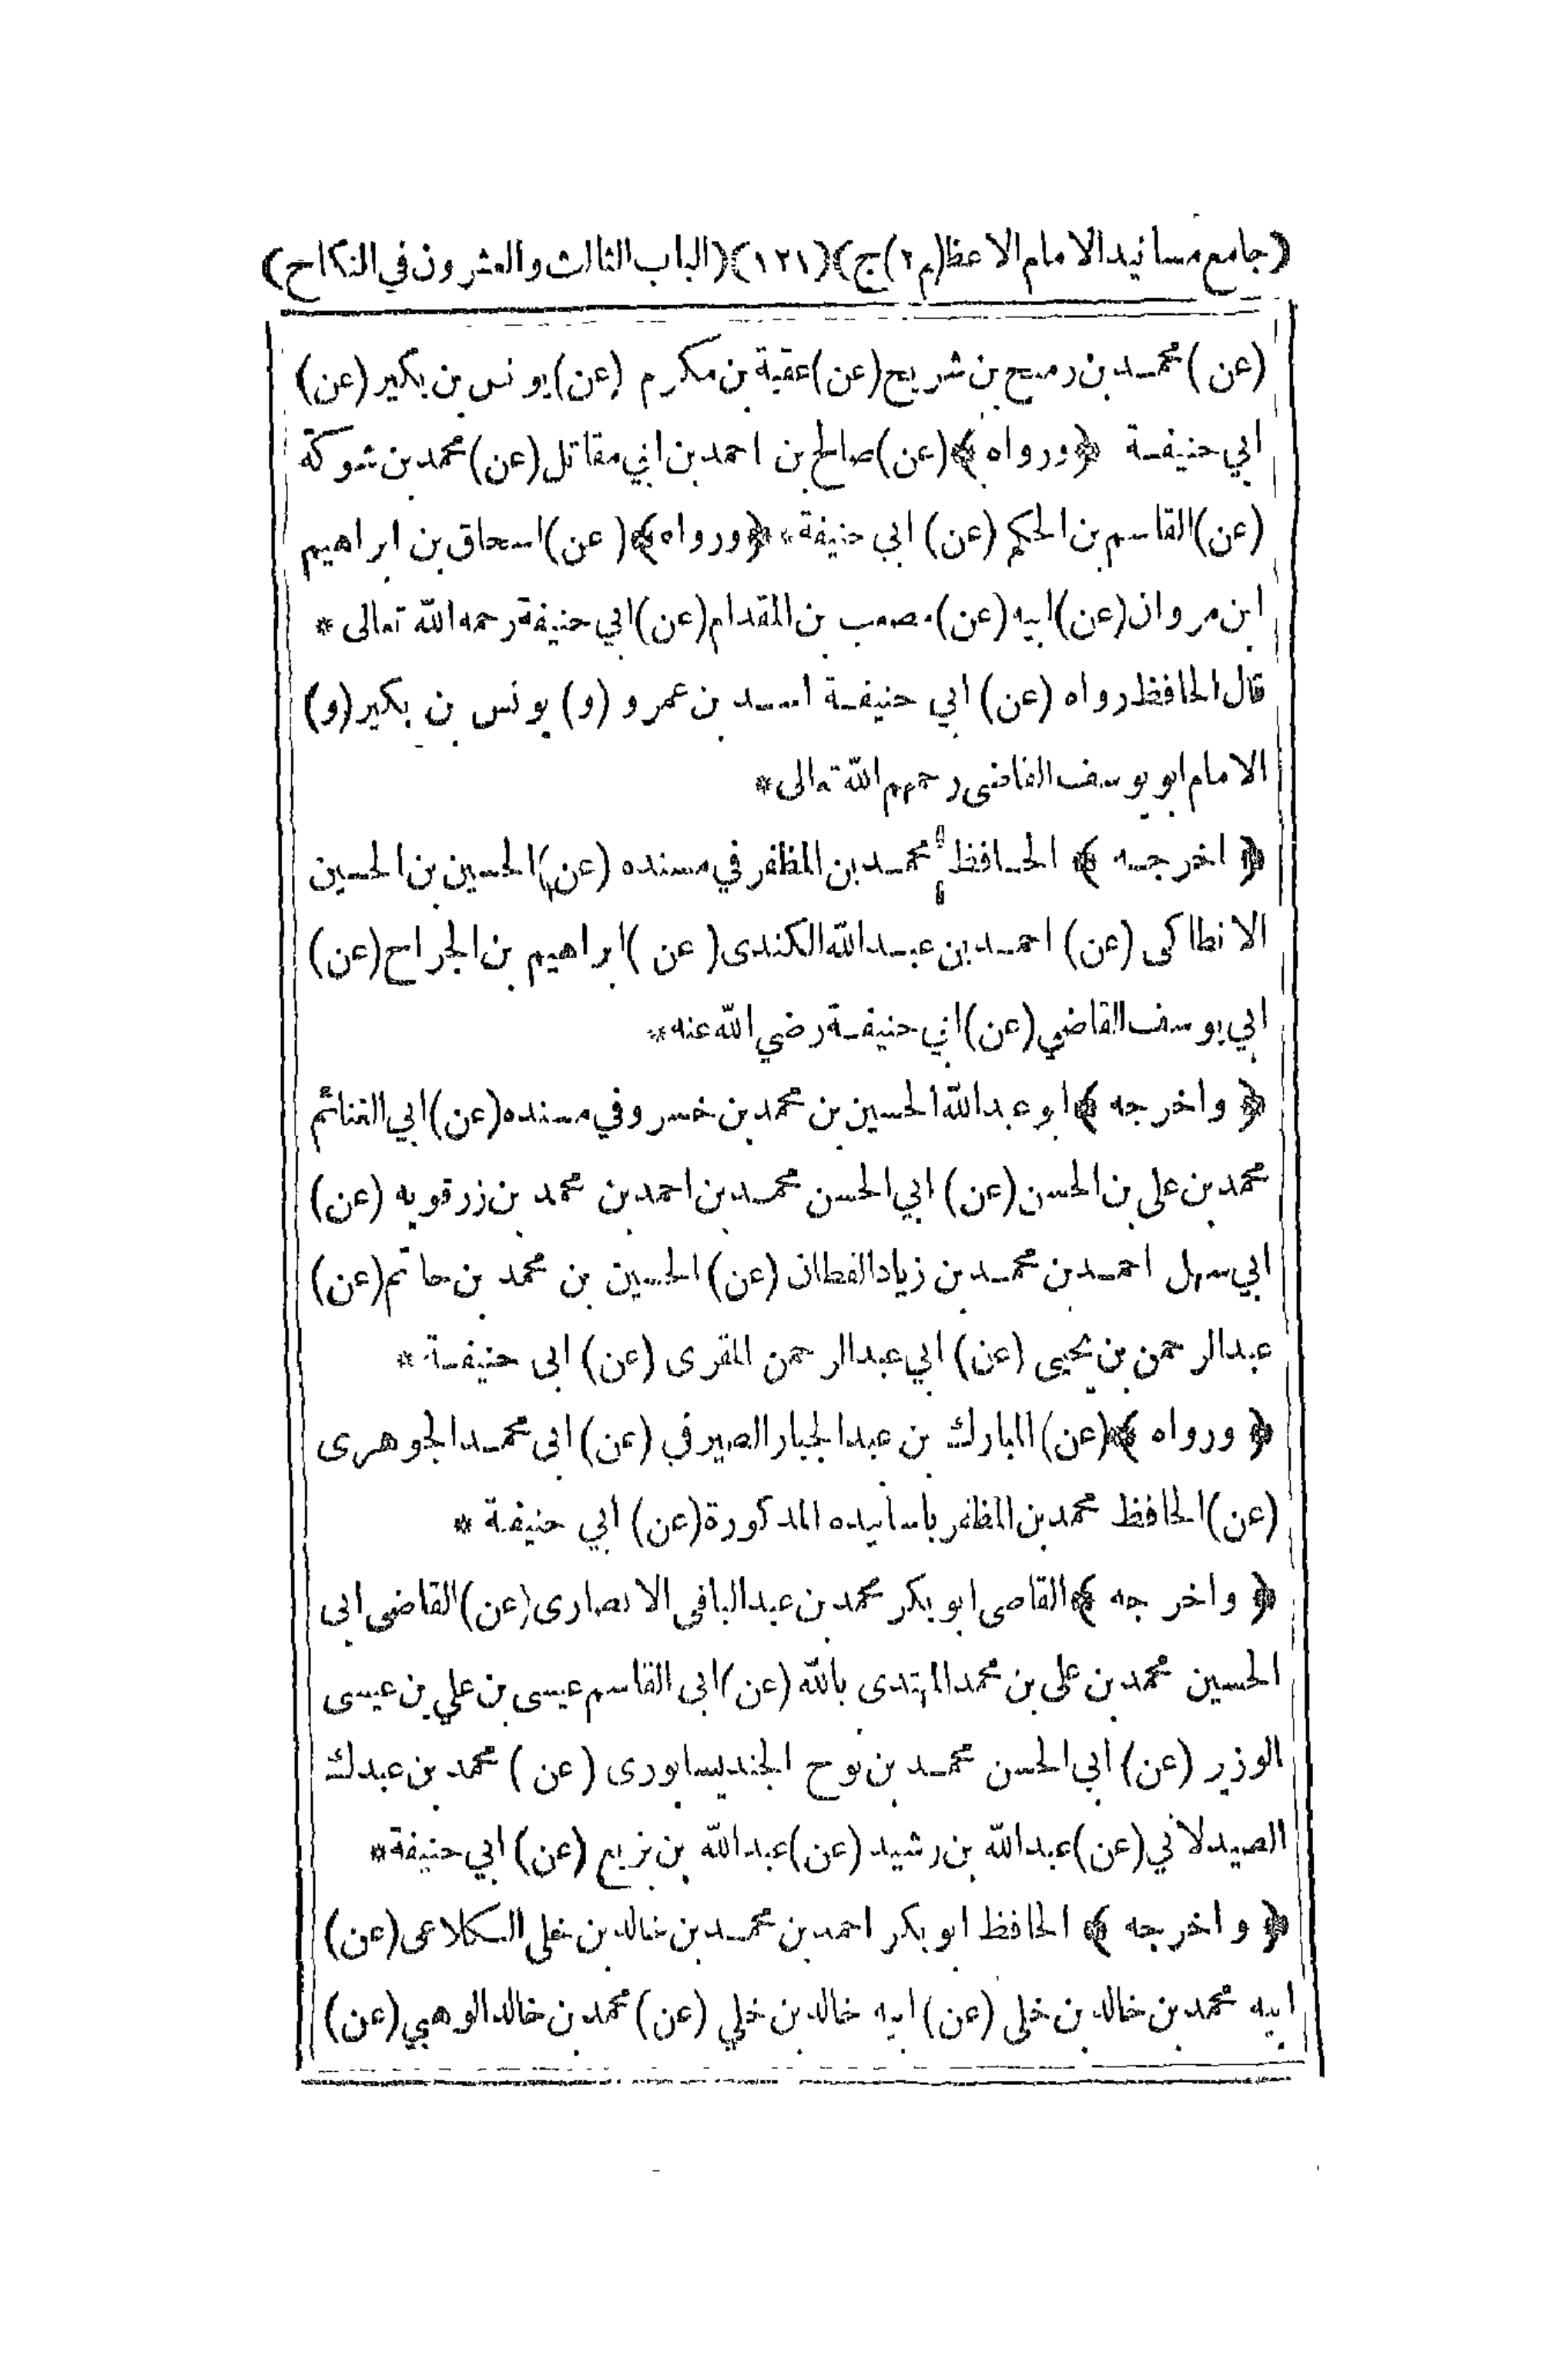 (جامع مسانيد الامام الاعظم)(ج٢)(١٢١)(الباب الثالث والعشرون في النكاح)
(عن) محمد بن رميح بن شريح (عن) عقبة بن مكرم (عن) يونس بن بكير (عن)
ابي حنيفة ﴿ورواه﴾ (عن) صالح بن احمد بن ابي مقاتل (عن) محمد بن شوكة
(عن) القاسم بن الحكم (عن) ابي حنيفة * ﴿ورواه﴾ (عن) اسحاق بن ابراهيم
ابن مروان (عن) ابيه (عن) مصعب بن المقدام (عن) ابي حنيفة رحمه الله تعالى *
قال الحافظ رواه (عن) ابي حنيفة اسد بن عمرو (و) يونس بن بكير (و)
الامام ابو يوسف القاضى رحمهم الله تعالى *
﴿اخرجه﴾ الحافظ محمد بن المظفر في مسنده (عن) الحسين بن الحسين
الانطاكى (عن) احمد بن عبد الله الكندى (عن) ابراهيم بن الجراح (عن)
ابي يوسف القاضي (عن) ابي حنيفة رضي الله عنه *
﴿واخرجه﴾ ابو عبد الله الحسين بن محمد بن خسرو في مسنده (عن) ابي الغنائم
محمد بن على بن الحسن (عن) ابي الحسن محمد بن احمد بن محمد بن زرقويه (عن)
ابي سهل احمد بن محمد بن زياد القطان (عن) الحسين بن محمد بن حاتم (عن)
عبد الرحمن بن يحيى (عن) ابي عبد الرحمن المقرى (عن) ابى حنيفة *
﴿ورواه﴾ (عن) المبارك بن عبد الجبار الصيرفي (عن) ابى محمد الجوهرى
(عن) الحافظ محمد بن المظفر باسانيده المذكورة (عن) ابي حنيفة *
﴿واخرجه﴾ القاضى ابو بكر محمد بن عبد الباقى الانصارى (عن) القاضى ابى
الحسين محمد بن على بن محمد المهتدى بالله (عن) ابى القاسم عيسى بن علي بن عيسى
الوزير (عن) ابي الحسن محمد بن نوح الجنديسابورى (عن) محمد بن عبدك
الصيدلاني (عن) عبد الله بن رشيد (عن) عبد الله بن بزيع (عن) ابي حنيفة *
﴿واخرجه﴾ الحافظ ابو بكر احمد بن محمد بن خالد بن خلى الكلاعى (عن)
ابيه محمد بن خالد بن خلى (عن) ابيه خالد بن خلي (عن) محمد بن خالد الوهبي (عن)